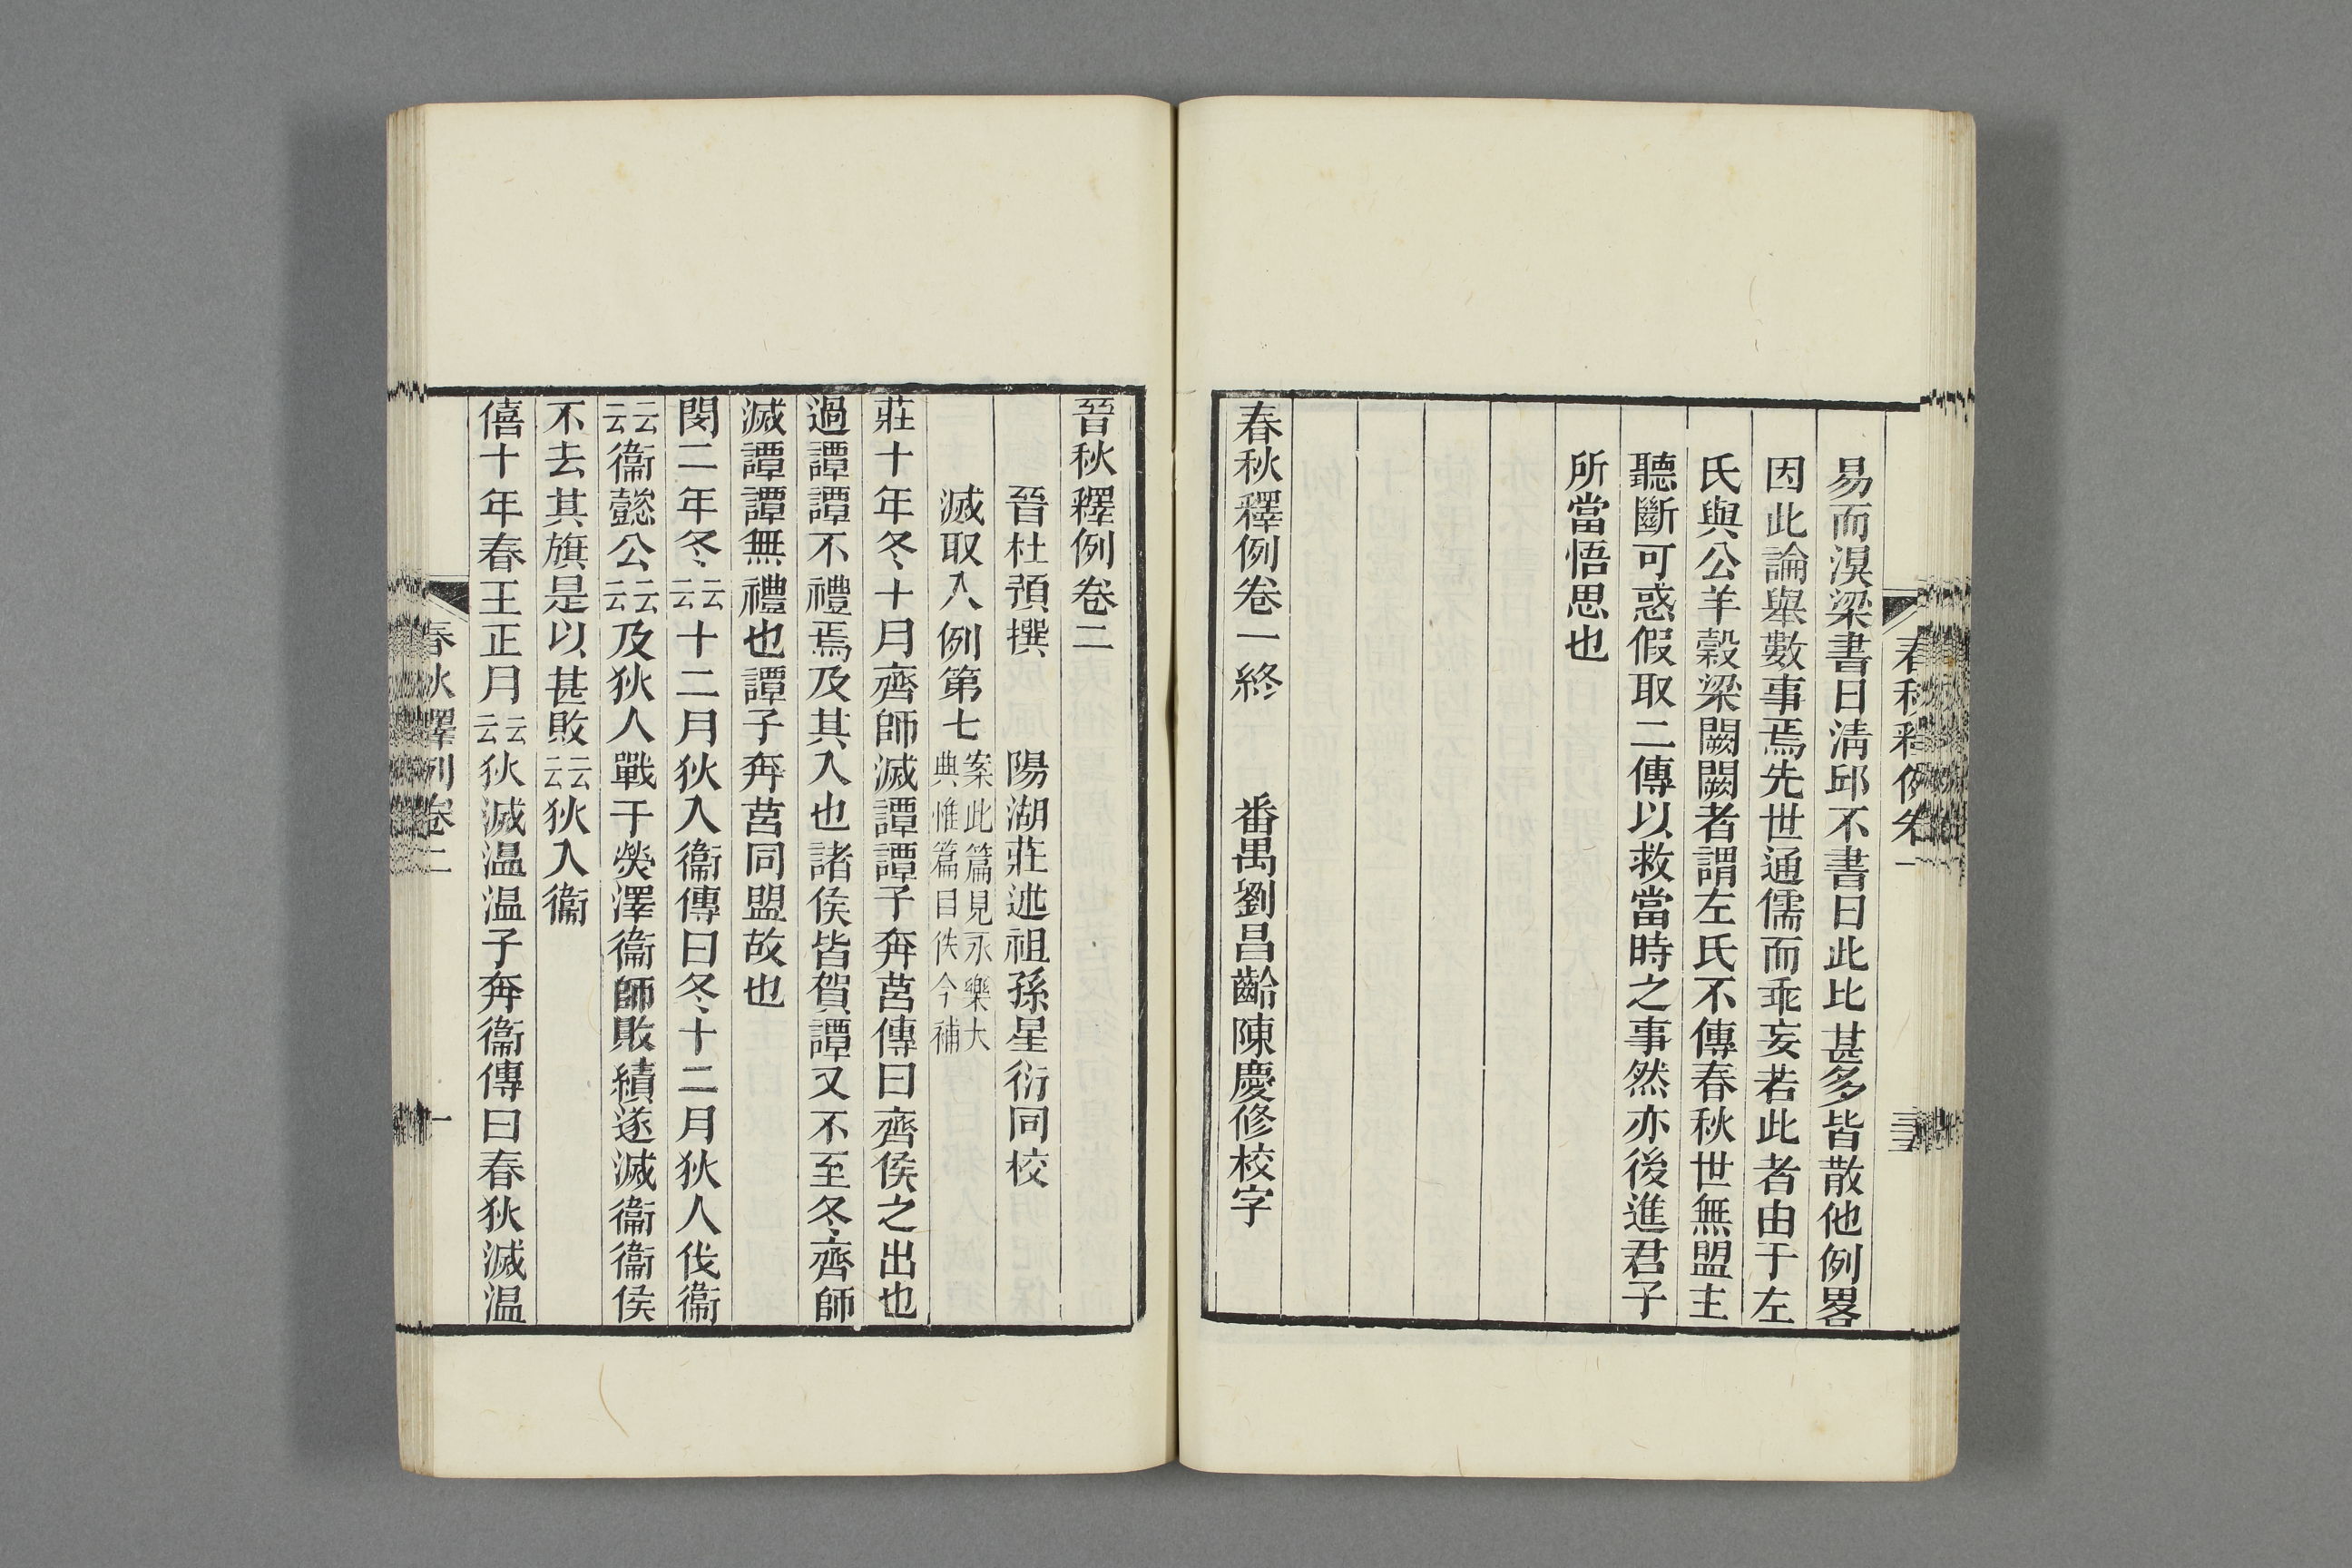 易而湨梁書日淸邱不書日此比甚多皆散他例畧
因此論舉數事焉先世通儒而乖妄若此者由于左
氏與公羊穀梁闕闕者謂左氏不傳春秋世無盟主
聽斷可惑假取二傳以救當時之事然亦後進君子
所當悟思也
春秋釋例卷一終　　番禺劉昌齡陳慶修校字
晉秋釋例卷二
晉杜預撰　　陽湖莊述祖孫星衍同校
滅取入例第七案此篇見永樂大
典惟篇目佚今補
莊十年冬十月齊師滅譚譚子奔莒傳曰齊侯之出也
過譚譚不禮焉及其入也諸侯皆賀譚又不至冬齊師
滅譚譚無禮也譚子奔莒同盟故也
閔二年冬云云十二月狄入衞傳曰冬十二月狄人伐衞
云云衞懿公云云及狄人戰于熒澤衞師敗績遂滅衞衞侯
不去其旗是以甚敗云云狄入衞
僖十年春王正月云云狄滅温温子奔衞傳曰春狄滅温
春秋釋例卷二　一